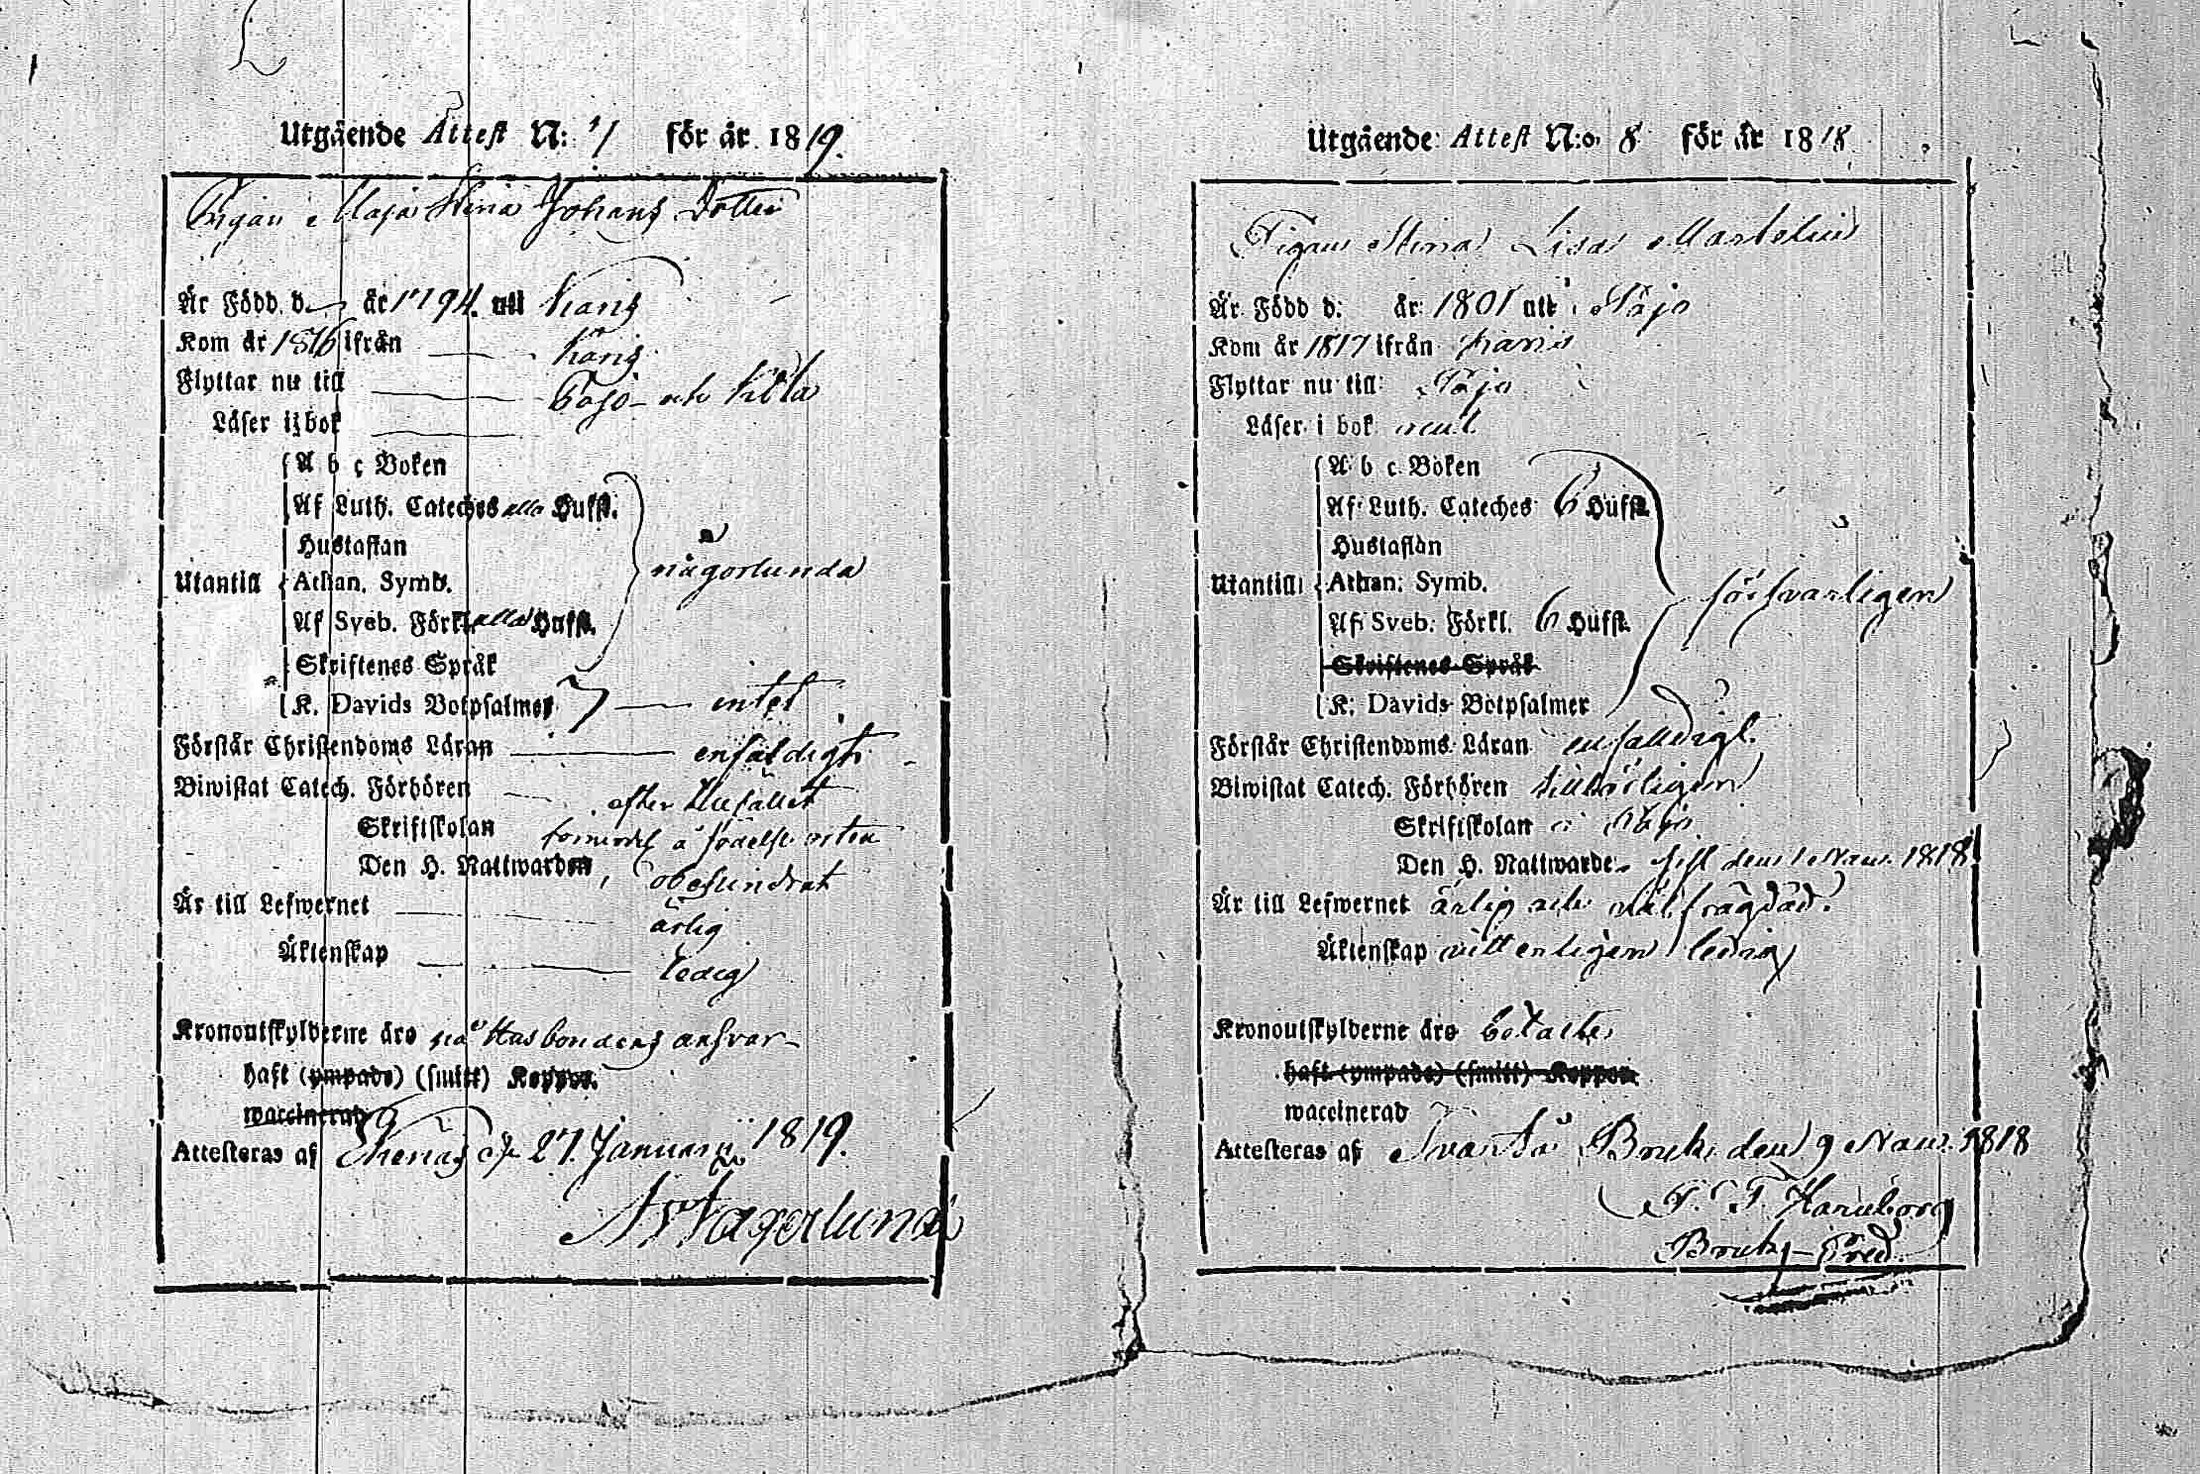 Utgående Attest N: 7 för år 1819.
Pigan Maja Stina Johans Dotter
Är Född d. år 1794. uti Karis
Kom år 1816 ifrån Karis
Flyttar nu till och Kihla
Läser i bok
A b c Boken
Af Luth. Cateches alla Hufst.
Hustaflan
någorlunda
Utantill Athan. Symb.
Af Sveb. Förkl. alla Hufst.
Skriftenes Språk
K. Davids Botpsalmer intet
Förstår Christendoms Läran enfaldigt
Biwistat Catech. Förhören efter tillfället
Skriftskolan å födelse orten
Den H. Nattwarden, obehindrat
Är till Lefwernet ärlig
Äktenskap ledig
Kronoutskylderne äro på Husbondens ansvar
haft (ympade) (smitt) Koppor.
waccinerad
Attesteras af Ekenäs d. 27. Januarii 1819.
Fagerlund
Utgående Attest N:o 8 för år 1818
Pigan Stina Lisa Martelin
Är Född d. år 1801 uti Pojo
Kom år 1817 ifrån Karis
Flyttar nu till Pojo
Läser i bok
A b c Boken
Af Luth. Cateches 6 Hufst.
Hustaflan
Utantill Athan. Symb. försvarligen
Af Sveb. Förkl. 6 Hufst.
Skriftenes Språk
K. Davids Botpsalmer
Förstår Christendoms Läran enfalldigt.
Biwistat Catech. Förhören tillbörligen
Skriftskolan i
Den H. Nattwarde. sist den 1 Nov. 1818
Är till Lefwernet ärlig och välfrägdad.
Äktenskap vitterligen ledig
Kronoutskylderne äro betalte
haft (ympade) (smitt) Koppor
waccinerad
Attesteras af Svartå Bruk den 9 Nov. 1818
Bruks-Pred.